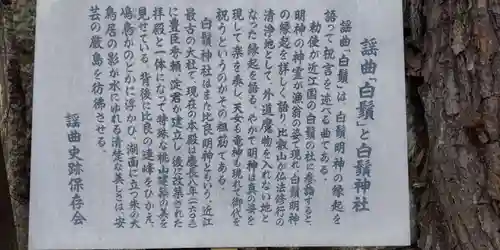 謡曲「白鬚」と白鬚神社
謡曲「白鬚」は、白鬚明神の縁起を
語って祝言を述べる曲である。
勅使が近江国の白鬚の社に参詣すると、
明神の神霊が漁翁の姿で現れ白鬚明神
の縁起を詳しく語り、比叡山が仏法修行の
清浄地として、外道魔物を入れない地と
なった縁起を語る。やがて明神は真の姿を
現して楽を奏し天女も竜神も現れて御代を
祝うというのがその粗筋である。
白鬚神社はまた比良明神ともいう。近江
最古の大社で、現在の本殿は慶長八年(一六〇三)
に豊臣秀頼、淀君が建立し、後に改築された
拝殿と一体になって特殊な桃山建築の美を
見せている。背後に比良の連峰をひかえ、
鳰鳥がのどかに浮かび、湖面に立つ朱の大
鳥居の影が水にゆれる清楚な美しさは、安
芸の厳島を彷彿させる。
謡曲史跡保存会